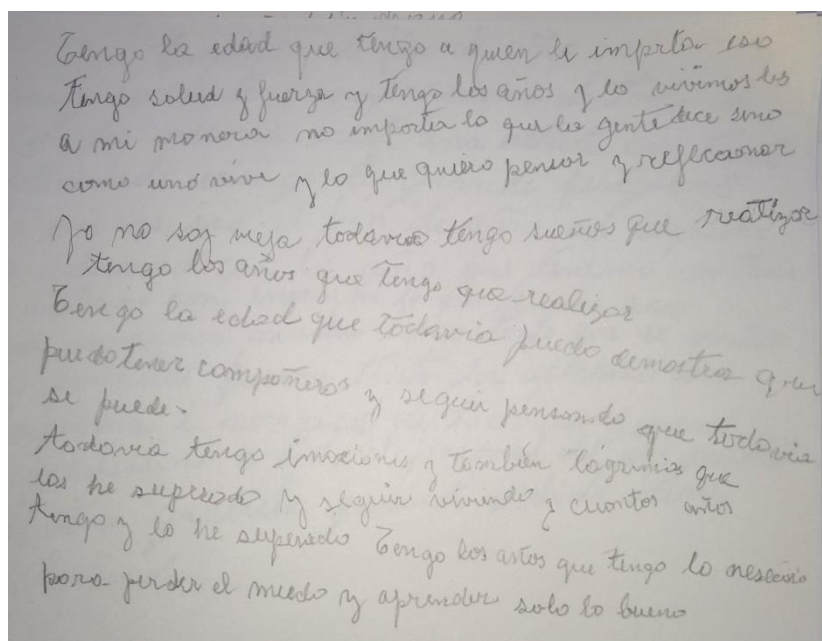 Tengo la edad que tengo a quien le imprta eso
tengo salud y fuerza y tengo los años y lo vivimos los
a mi manera no importa lo que la gente dice sino
como uno vive y lo que quiero pensar y reflecionar
Yo no soy vieja todavia tengo sueños que realizar
tengo los años que tengo que realizar
Tengo la edad que todavia puedo demostrar que
puedo tener compañeros y seguir pensando que todavia
se puede.
todavia tengo imociones y también lágrimas que
las he superado y seguir viviendo y cuantos años
tengo y lo he superado Tengo los años que tengo lo nesesario
para perder el miedo y aprender solo lo bueno